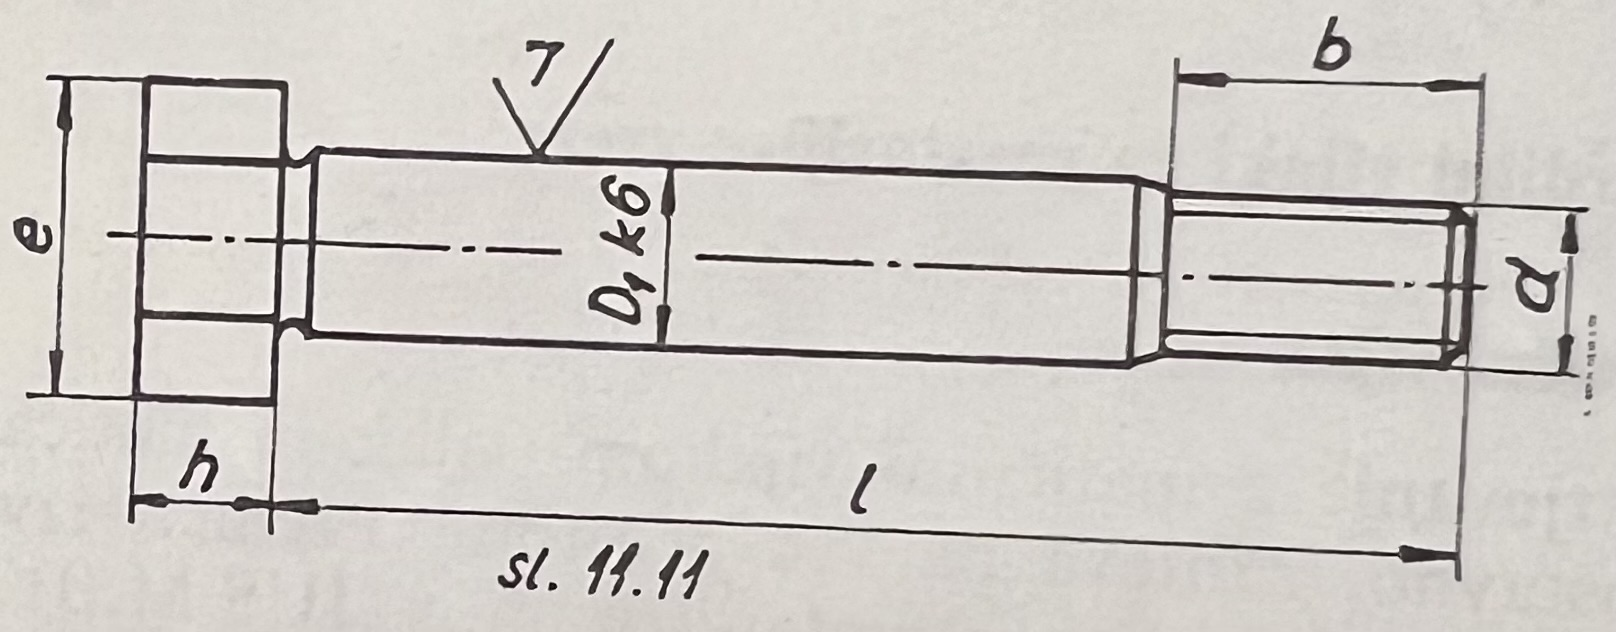 7
b
e
D₁ k6
d
h
l
sl. 11.11